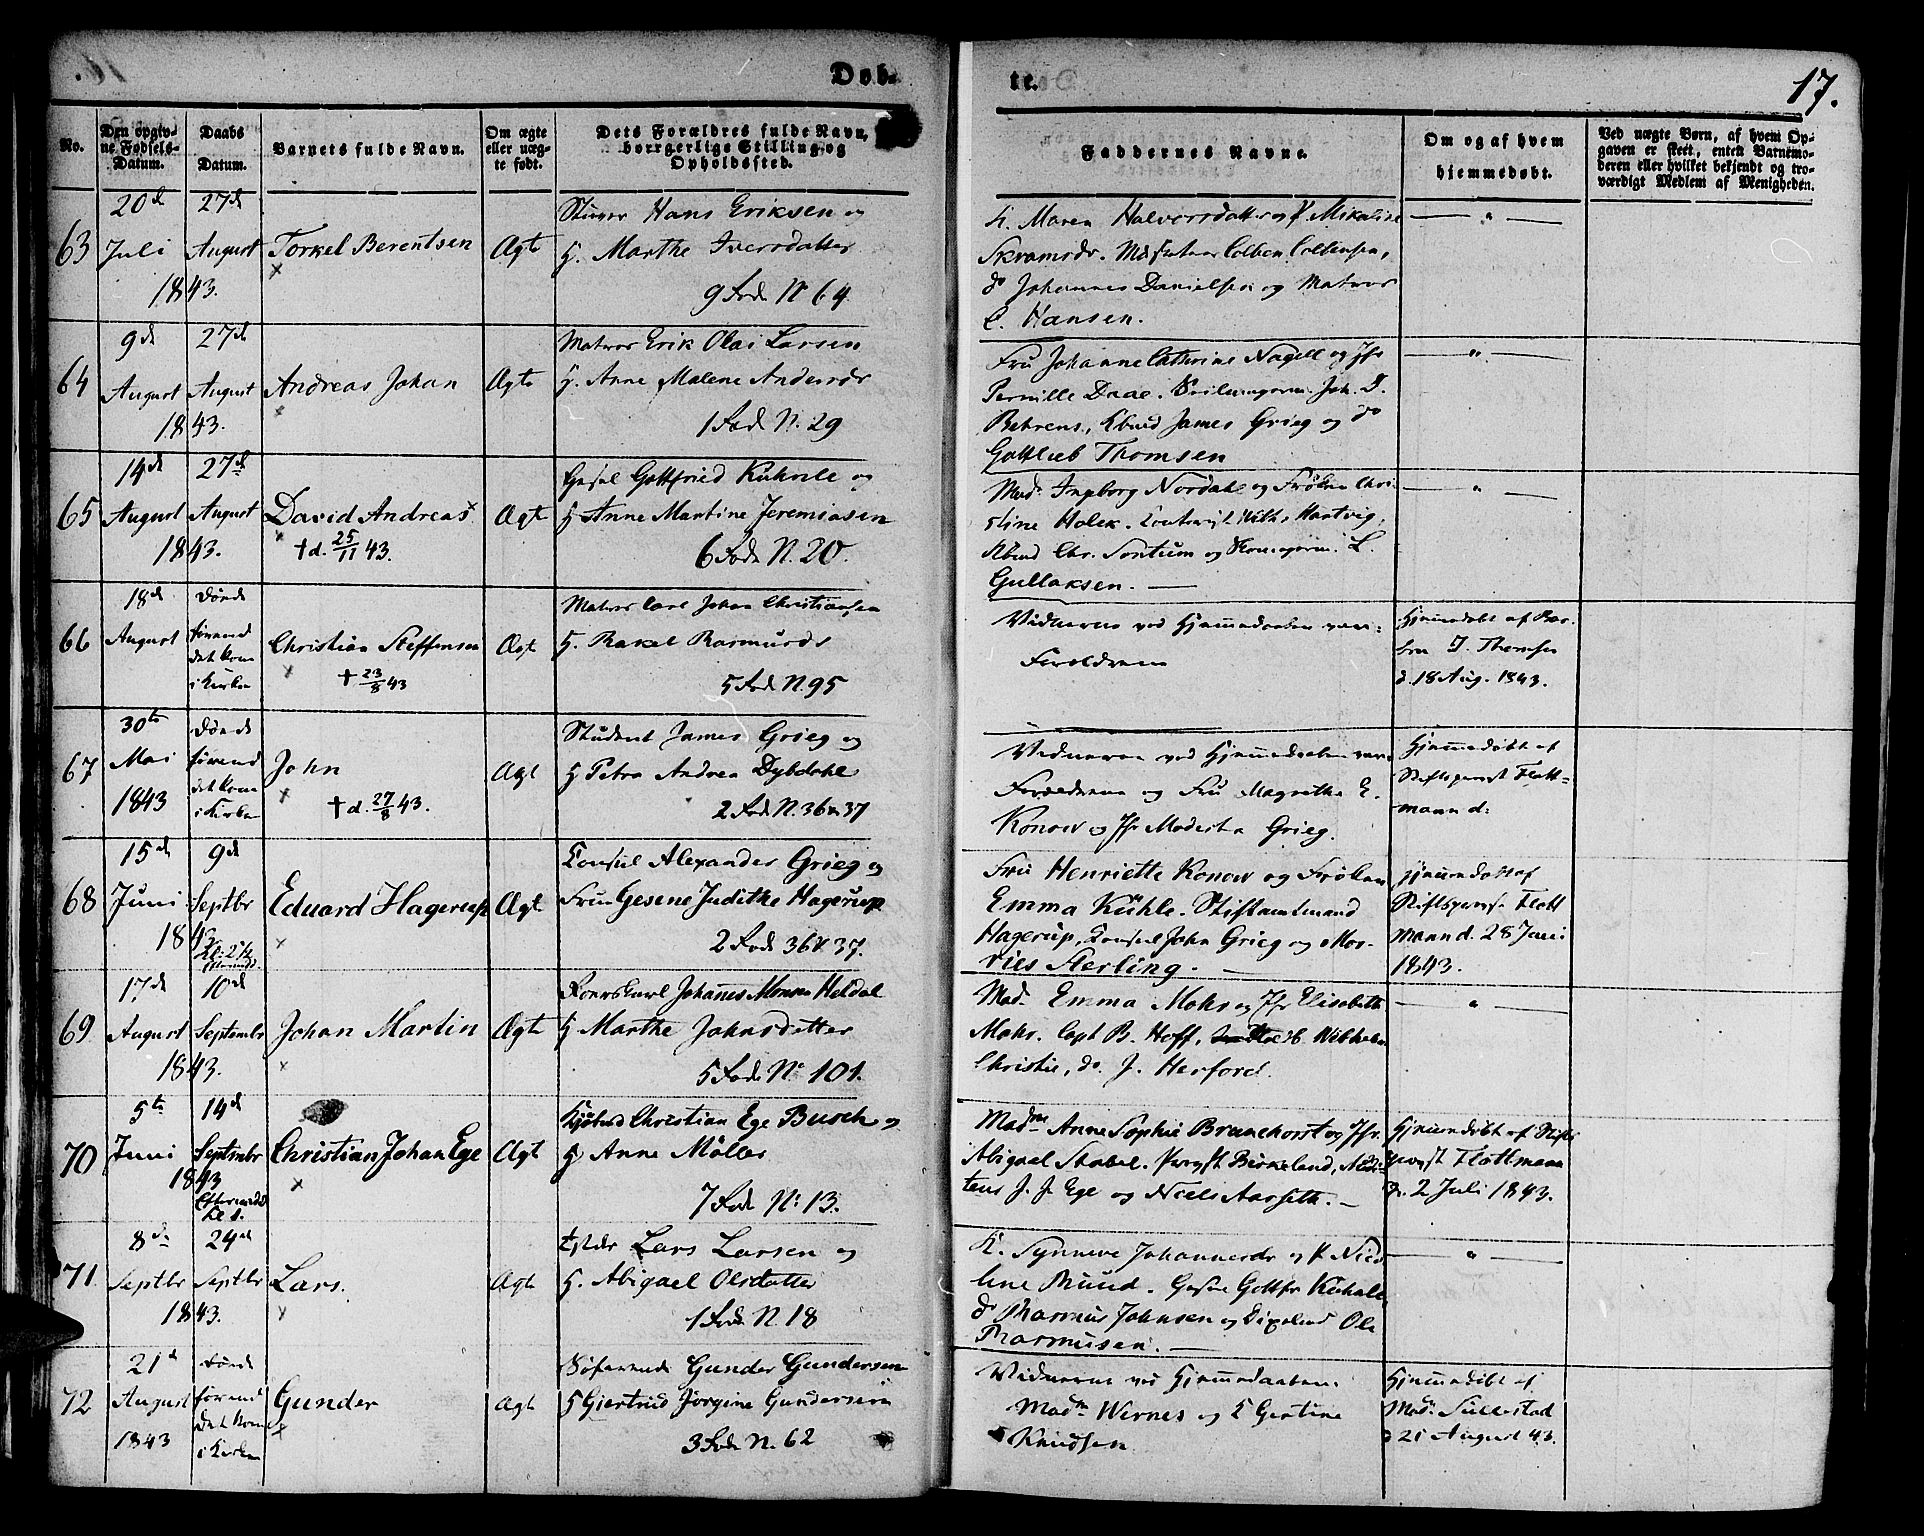 Døb-
te.
17.
No.
Den opgiv-
ne Fødsels-
Datum.
Daabs
Datum.
Barnets fulde Navn.
Om ægte
eller uæg-
te født.
Dets Forældres fulde Navn,
borgerlige Stilling og
Opholdssted.
Faddernes Navne.
Om og af hvem
hjemmedøbt.
Ved uægte Børn, af hvem Op-
gaven er skeet, enten Barnemo-
deren eller hvilket bekjendt og tro-
værdigt Medlem af Menigheden.
63
20d
Juli
1843.
27d
August
Torkel Berentsen
Ægte
Hans Eriksen og
H. Marthe Iversdatter
9 Fode No 64
K. Maren Halvorsdatter og P. Mikaline
Colben Colbensen,
do Johannes Danielsen og Matros
C. Hansen.
64
9de
August
1843.
27de
August
Andreas Johan
Ægte
Matros Erik Olai Larsen
H. Anne Malene Andersdr
1 Fode N. 29
Fru Johanne Cathrine Nagell og Jfr
Pernille Daae. Joh. D.
Behrens, James Grieg og do
Gottlieb Thomsen
65
14de
August
1843.
27de
August
David Andreas
†d. 25/11 43.
Ægte
Gottfried Kuhnle og
H Anne Martine Jeremiasen
6 Fode N. 20.
Mad. Ingeborg Nordahl og Frøken Chri-
stine Holck. Hartvig,
Chr. Sontum og L.
Gullaksen.
66
18de
August
Døde
førend
det kom
i Kirken
Christian Steffensen
† 23/8 43
Ægte
Matros Carl Johan Christiansen
H. Rakel Rasmusdr
5 Fode N. 95
Vidnerne ved Hjemmedaaben vare:
Forældrene
Hjemmedøbt af Bar-
bra J. Thomsen
d. 18 Aug. 1843.
67
30te
Mai
1843
Døde
førend
det kom
i Kirken
John
†d. 27/8 43.
Ægte
Student James Grieg og
H Petra Andrea Dybdahl
2 Fode N. 36 & 37
Vidnerne ved Hjemmedaaben vare
Forældrene og Fru Magrethe E.
Konow og Jfr Modesta Grieg.
Hjemmedøbt af
Stiftsprovst Flott-
mann d:
68
15de
Juni
1843
9de
Septbr
Eduard Hagerup
Ægte
Consul Alexander Grieg og
Frue Gesene Judithe Hagerup
2 Fode 36 & 37.
Fru Henriette Konow og Frøken
Emma Kühle. Stiftamtmand
Hagerup, Consul John Grieg og Mor-
ries Sterling.
Hjemmedøbt af
Stiftsprovst Flott
mann d. 28 Juni
1843.
69
17de
August
1843.
10de
September
Johan Martin
Ægte
Johanes Monsen Heldal
H Marthe Johnsdatter
5 Fode No 101.
Mad. Emma Mohr og Jfr Elisabeth
Mohr. Capt B. Hoff, Wilhelm
Christie, do. J. Herford.
70
5te
Juni
1843
14de
September
Eftermidd.
Christian Johan Ege
Ægte
Christian Ege Busch og
H Anne Møller
7 Fode No: 13.
Madme Anne Sophie Brunchorst og Jfr.
Abigael Stabel. Provst Birkeland,
J. J. Ege og Niels Aarseth.
Hjemmedøbt af Stifts
provst Flottmann
d. 2 Juli 1843.
71
8de
Septbr
1843.
24de
Septbr
Lars.
Ægte
Lars Larsen og
H. Abigael Olsdatter
1 Fode N. 18
K. Synneve Johannesdr og P. Nico-
line Muud. Gottfr Kuhnle
do Rasmus Johnsen og Ole
Rasmusen.
72
21d
August
1843
Døde
førend
det kom
i Kirken
Gunder
Ægte
Søfarende Gunder Gundersen
H Gjertrud Jørgine Gundersen
3 Fode N. 62
Vidnerne ved Hjemmedaaben:
Madm Wernes og K Gertine
Knudsen
Hjemmedøbt af
Mad. Sullestad
d 21 August 43.